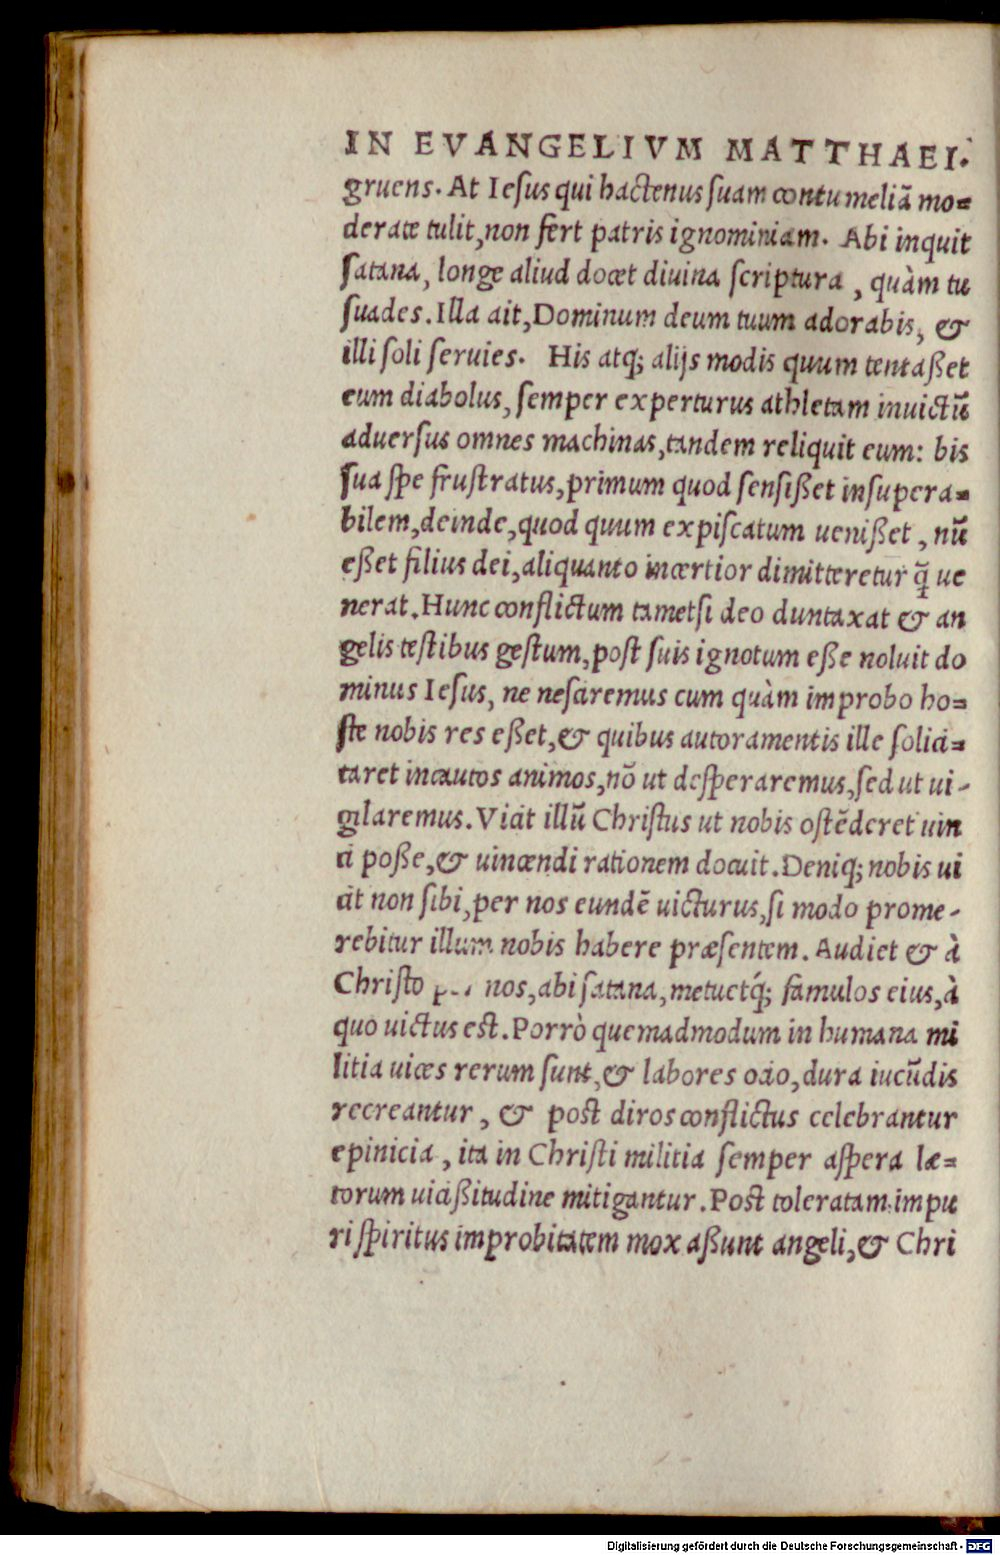 IN EVANGELIVM MATTHAEI.
gruens. At Iesus qui hactenus suam contumeliā mo=
derate tulit, non fert patris ignominiam. Abi inquit
satana, longe aliud docet diuina scriptura, quàm tu
suades. Illa ait, Dominum deum tuum adorabis, &
illi soli seruies. His atq; alijs modis quum tentaßet
eum diabolus, semper experturus athletam inuictū
aduersus omnes machinas, tandem reliquit eum: bis
sua spe frustratus, primum quod sensißet insupera=
bilem, deinde, quod quum expiscatum uenißet, nū
eßet filius dei, aliquanto incertior dimitteretur q̄ ue
nerat. Hunc conflictum tametsi deo duntaxat & an
gelis testibus gestum, post suis ignotum eße noluit do
minus Iesus, ne nesciremus cum quàm improbo ho=
ste nobis res eßet, & quibus autoramentis ille solici=
taret incautos animos, nō ut desperaremus, sed ut ui-
gilaremus. Vicit illū Christus ut nobis ostēderet uin
ci poße, & uincendi rationem docuit. Deniq; nobis ui
cit non sibi, per nos eundē uicturus, si modo prome-
rebitur illum nobis habere præsentem. Audiet & à
Christo nos, abi satana, metuetq́; famulos eius, à
quo uictus est. Porrò quemadmodum in humana mi
litia uices rerum sunt, & labores ocio, dura iucūdis
recreantur, & post diros conflictus celebrantur
epinicia, ita in Christi militia semper aspera læ=
torum uicißitudine mitigantur. Post toleratam impu
ri spiritus improbitatem mox aßunt angeli, & Chri
Digitalisierung gefördert durch die Deutsche Forschungsgemeinschaft - DFG